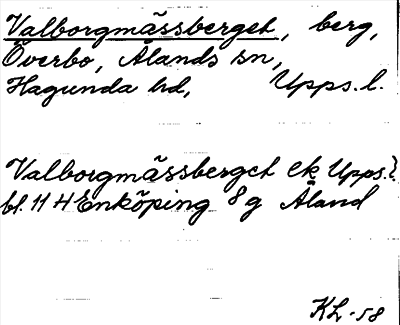 Valborgmässberget, berg,
Överbo, Ålands sn,
Hagunda hd, Upps. l.
Valborgmässberget ek Upps.l
bl. 11 H Enköping 8g Åland
KL-58